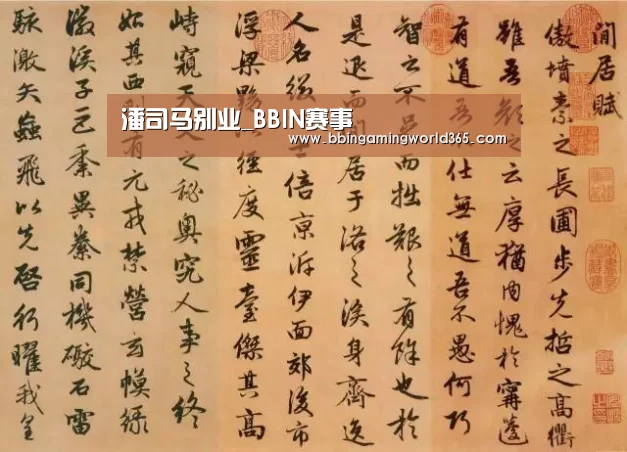 閒居賦
傲墳素之長圃步先哲之高衢
雖吾顏之云厚猶內愧於甯蘧
有道吾仕無道吾不愚何巧
智之不足而拙艱之有餘也於
是退而閒居于洛之涘身齊逸
人名綴士倍京泝伊面郊後市
浮梁黝徑度靈臺傑其高
峙窺天文之秘奧究人事之終
始其西則有元戎禁營玄幙綠
徽溪子巨黍異絭同機礮石雷
駭激矢蝱飛以先啓行曜我皇
潘司马别业_BBIN赛事
www.bbingamingworld365.com